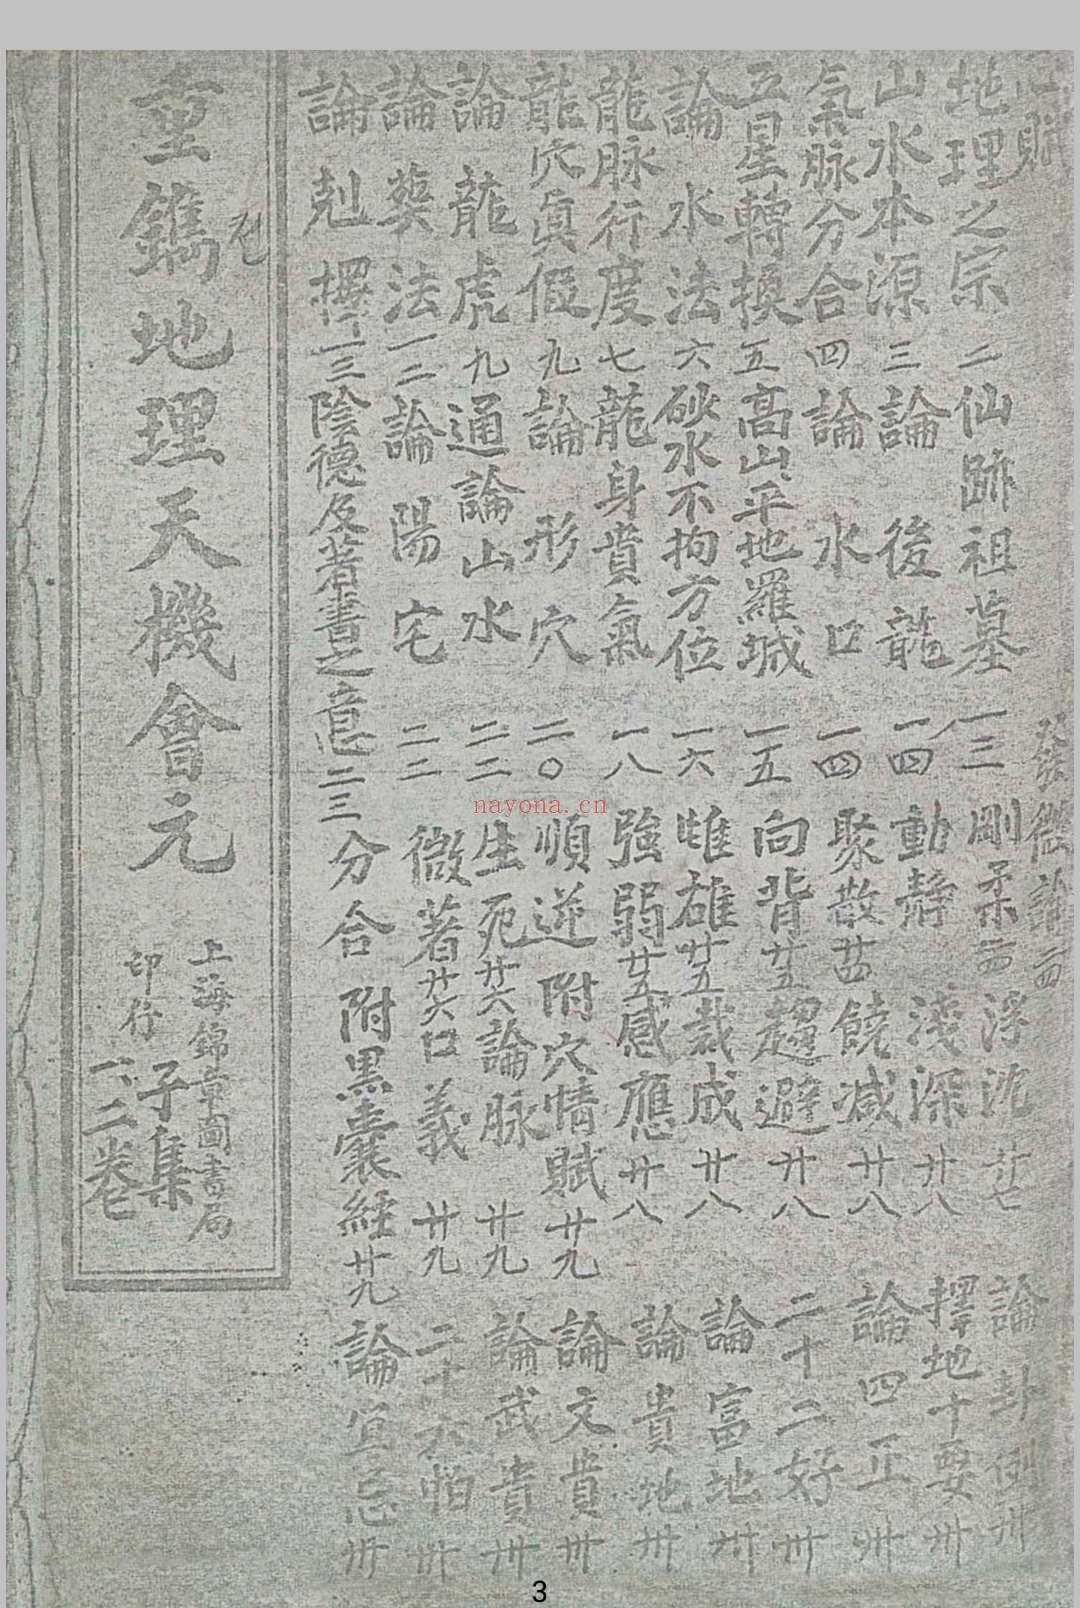 賦
地理之宗 二 仙跡祖墓 一三 剛柔 廿四 浮沈 廿七 論卦例 卅
山水本源 三 論後龍 一四 動靜 淺深 廿八 擇地十要 卅
氣脉分合 四 論水口 一四 聚散 廿四 饒减 廿八 論四正 卅
五星轉換 五 高山平地羅城 一五 向背 廿五 趨避 廿八 二十二好 卅
論水法 六 砂水不拘方位 一六 雌雄 廿五 裁成 廿八 論富地 卅
龍脉行度 七 龍身貴氣 一八 強弱 廿五 感應 廿八 論貴地 卅
龍穴眞假 九 論形穴 二〇 順逆 附穴情賦 廿九 論文貴 卅
論龍虎 九 通論山水 二二 生死 廿六 論脉 廿九 論武貴 卅
論葬法 一二 論陽宅 二二 微著 廿六 口義 廿九 二十六怕 卅
論剋擇 一三 陰德及著書之意 二三 分合 附黑囊經 廿九 論宜忌 卅
發微論 二四
重鐫地理天機會元
上海錦章圖書局
印行
子集
一、二卷
nayona.cn
3